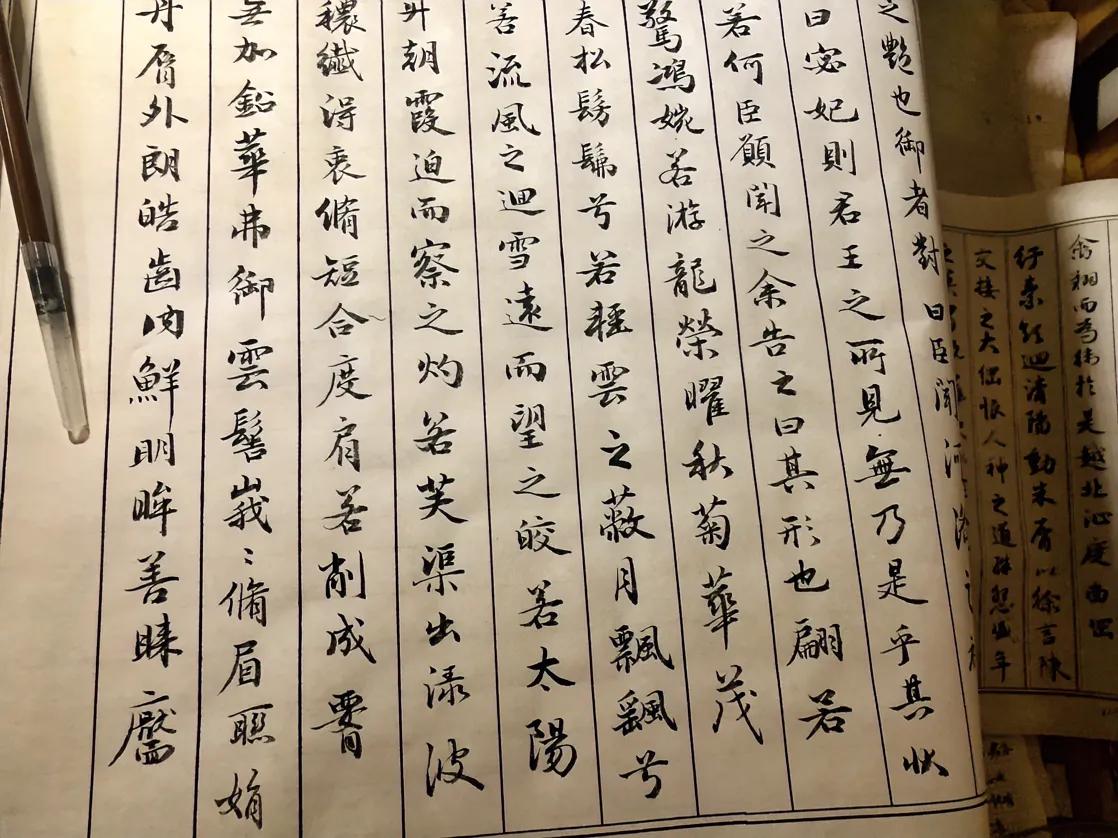 翔而為衛於是越北沚度南岡
紆素領迴清陽動朱脣以徐言陳
交接之大綱恨人神之道殊怨盛年
之艷也御者對曰臣聞河洛
曰宓妃則君王之所見無乃是乎其狀
若何臣願聞之余告之曰其形也翩若
驚鴻婉若游龍榮曜秋菊華茂
春松髣髴兮若輕雲之蔽月飄颻兮
若流風之迴雪遠而望之皎若太陽
升朝霞迫而察之灼若芙渠出淥波
穠纖得衷脩短合度肩若削成腰
無加鉛華弗御雲髻峩〻脩眉聯娟
丹脣外朗皓齒内鮮明眸善睞靨